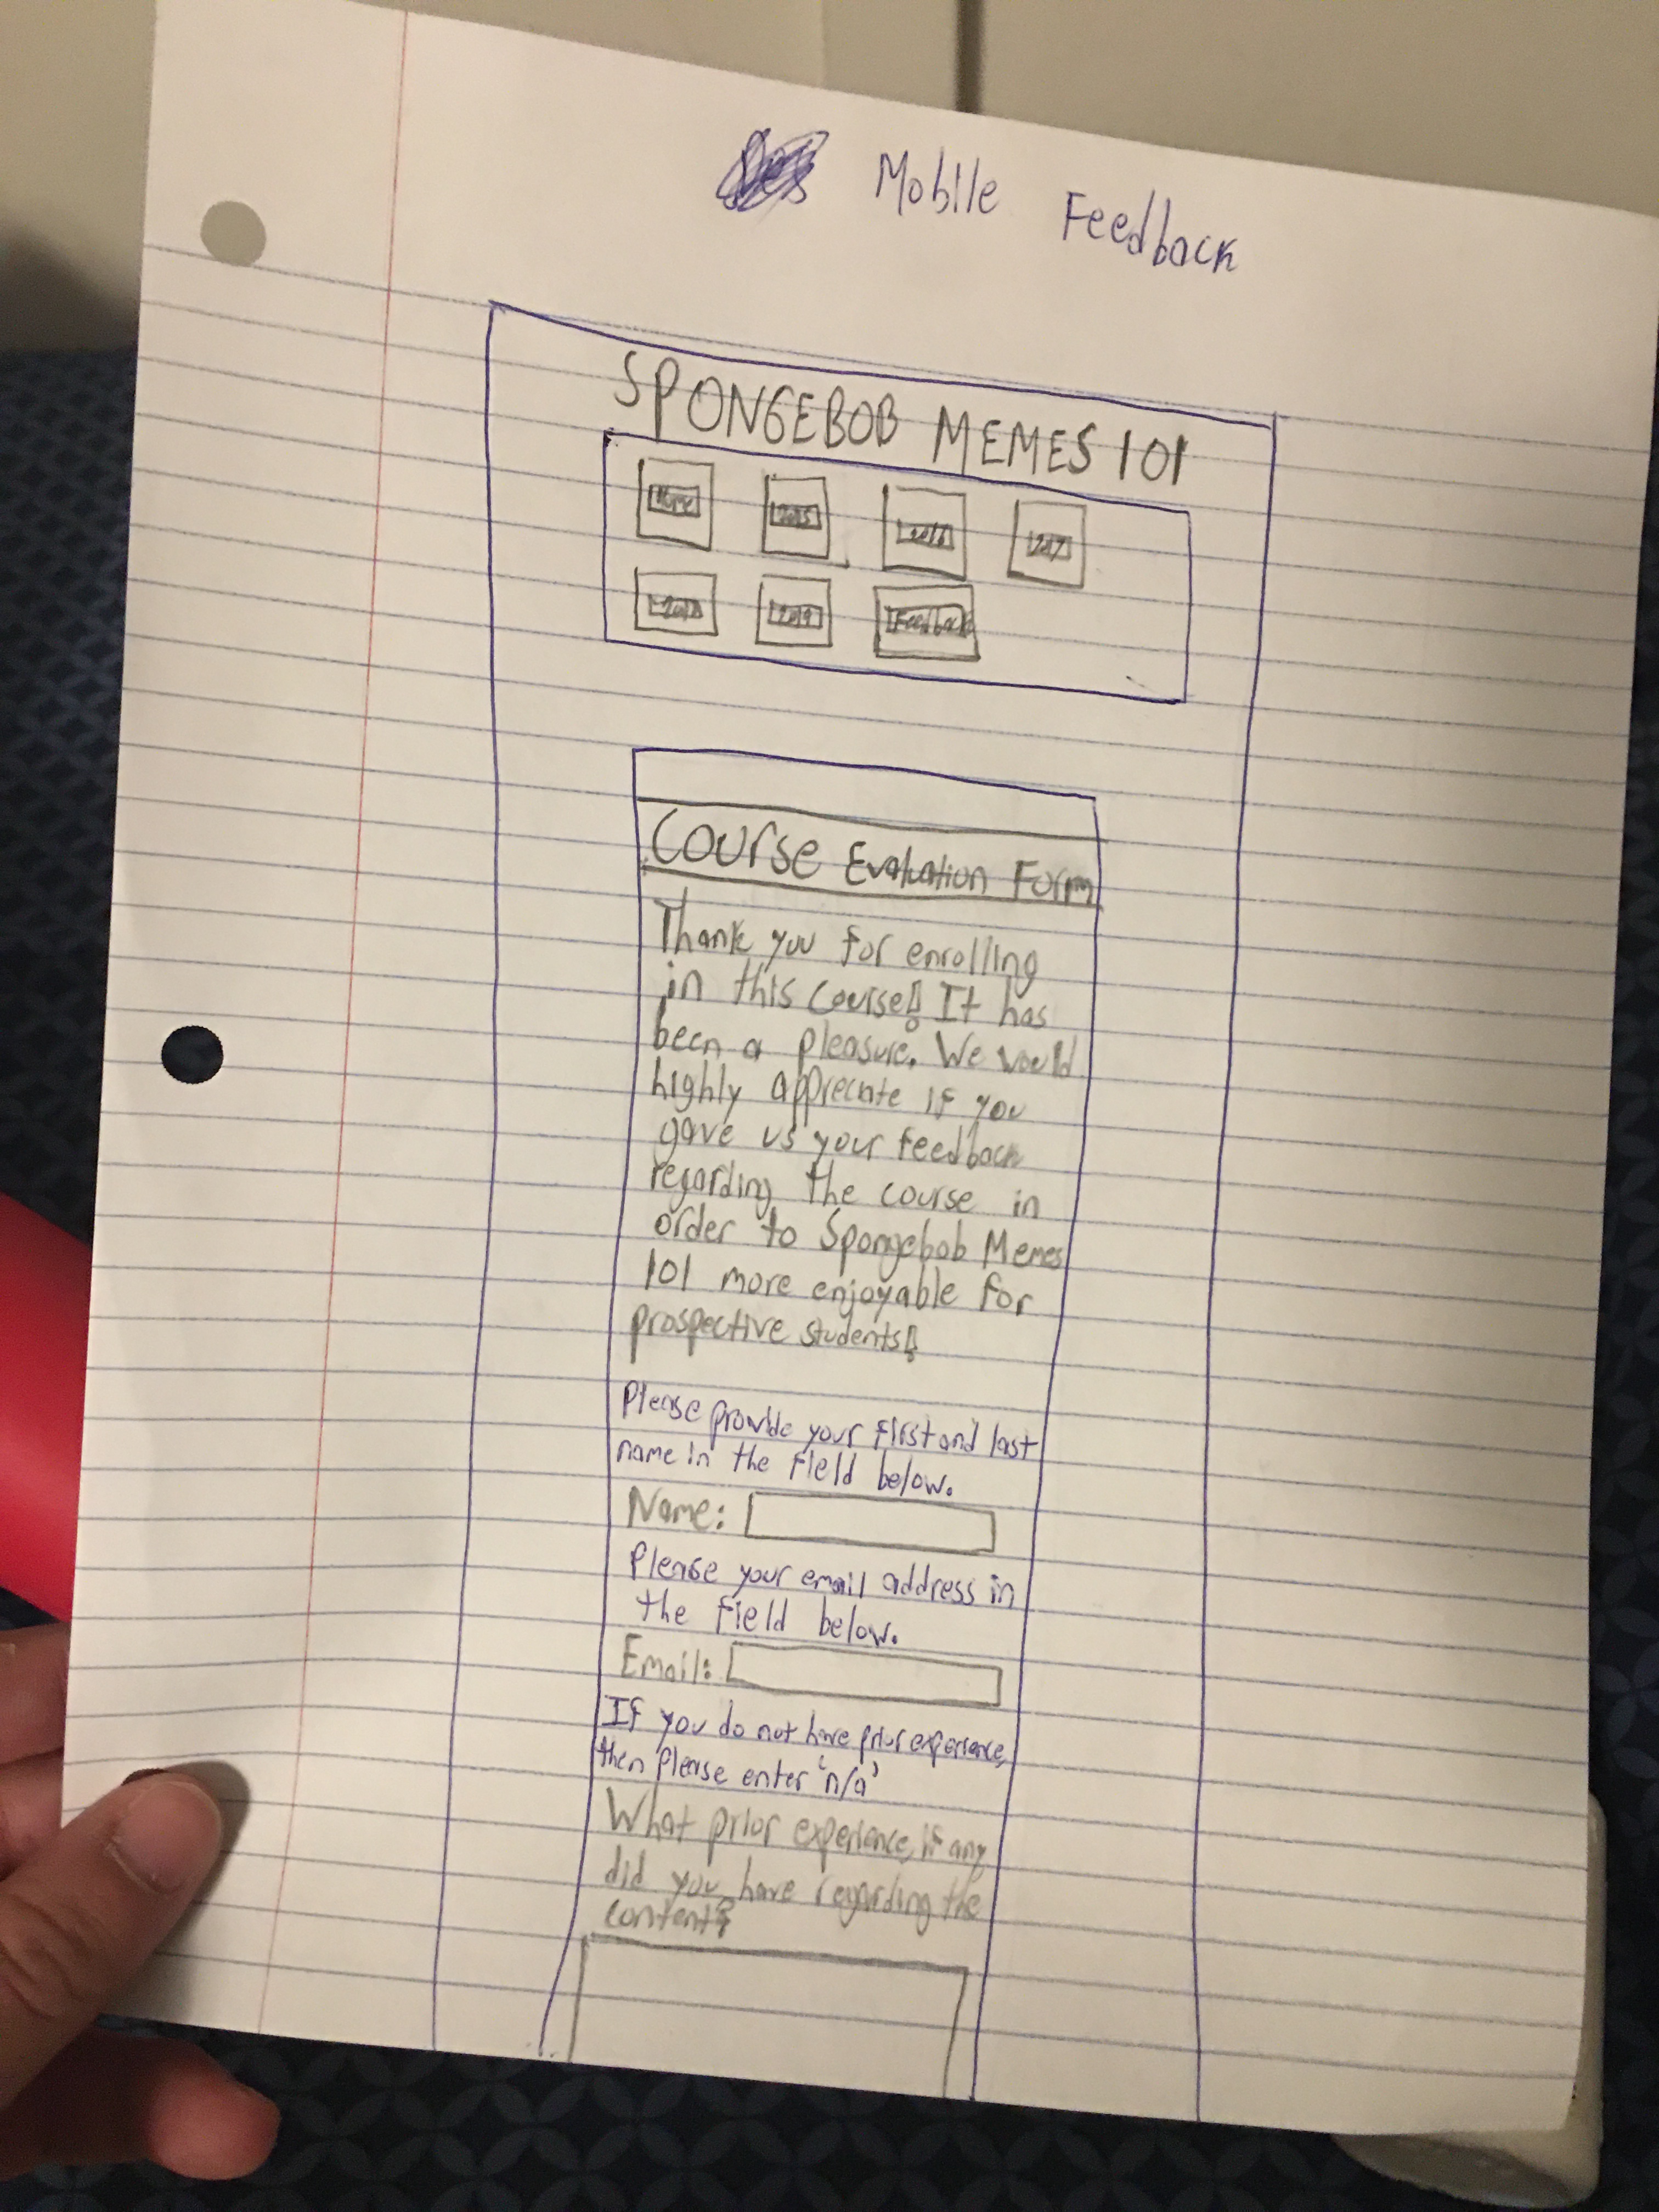 Mobile Feedback
SPONGEBOB MEMES 101
Home 2015 2016 2017
2018 2019 Feedback
Course Evaluation Form
Thank you for enrolling
in this course! It has
been a pleasure. We would
highly appreciate if you
gave us your feedback
regarding the course in
order to Spongebob Memes
101 more enjoyable for
prospective students!
Please provide your first and last
name in the field below.
Name:
Please your email address in
the field below.
Email:
If you do not have prior experience,
then please enter 'n/a'
What prior experience, if any
did you have regarding the
content?